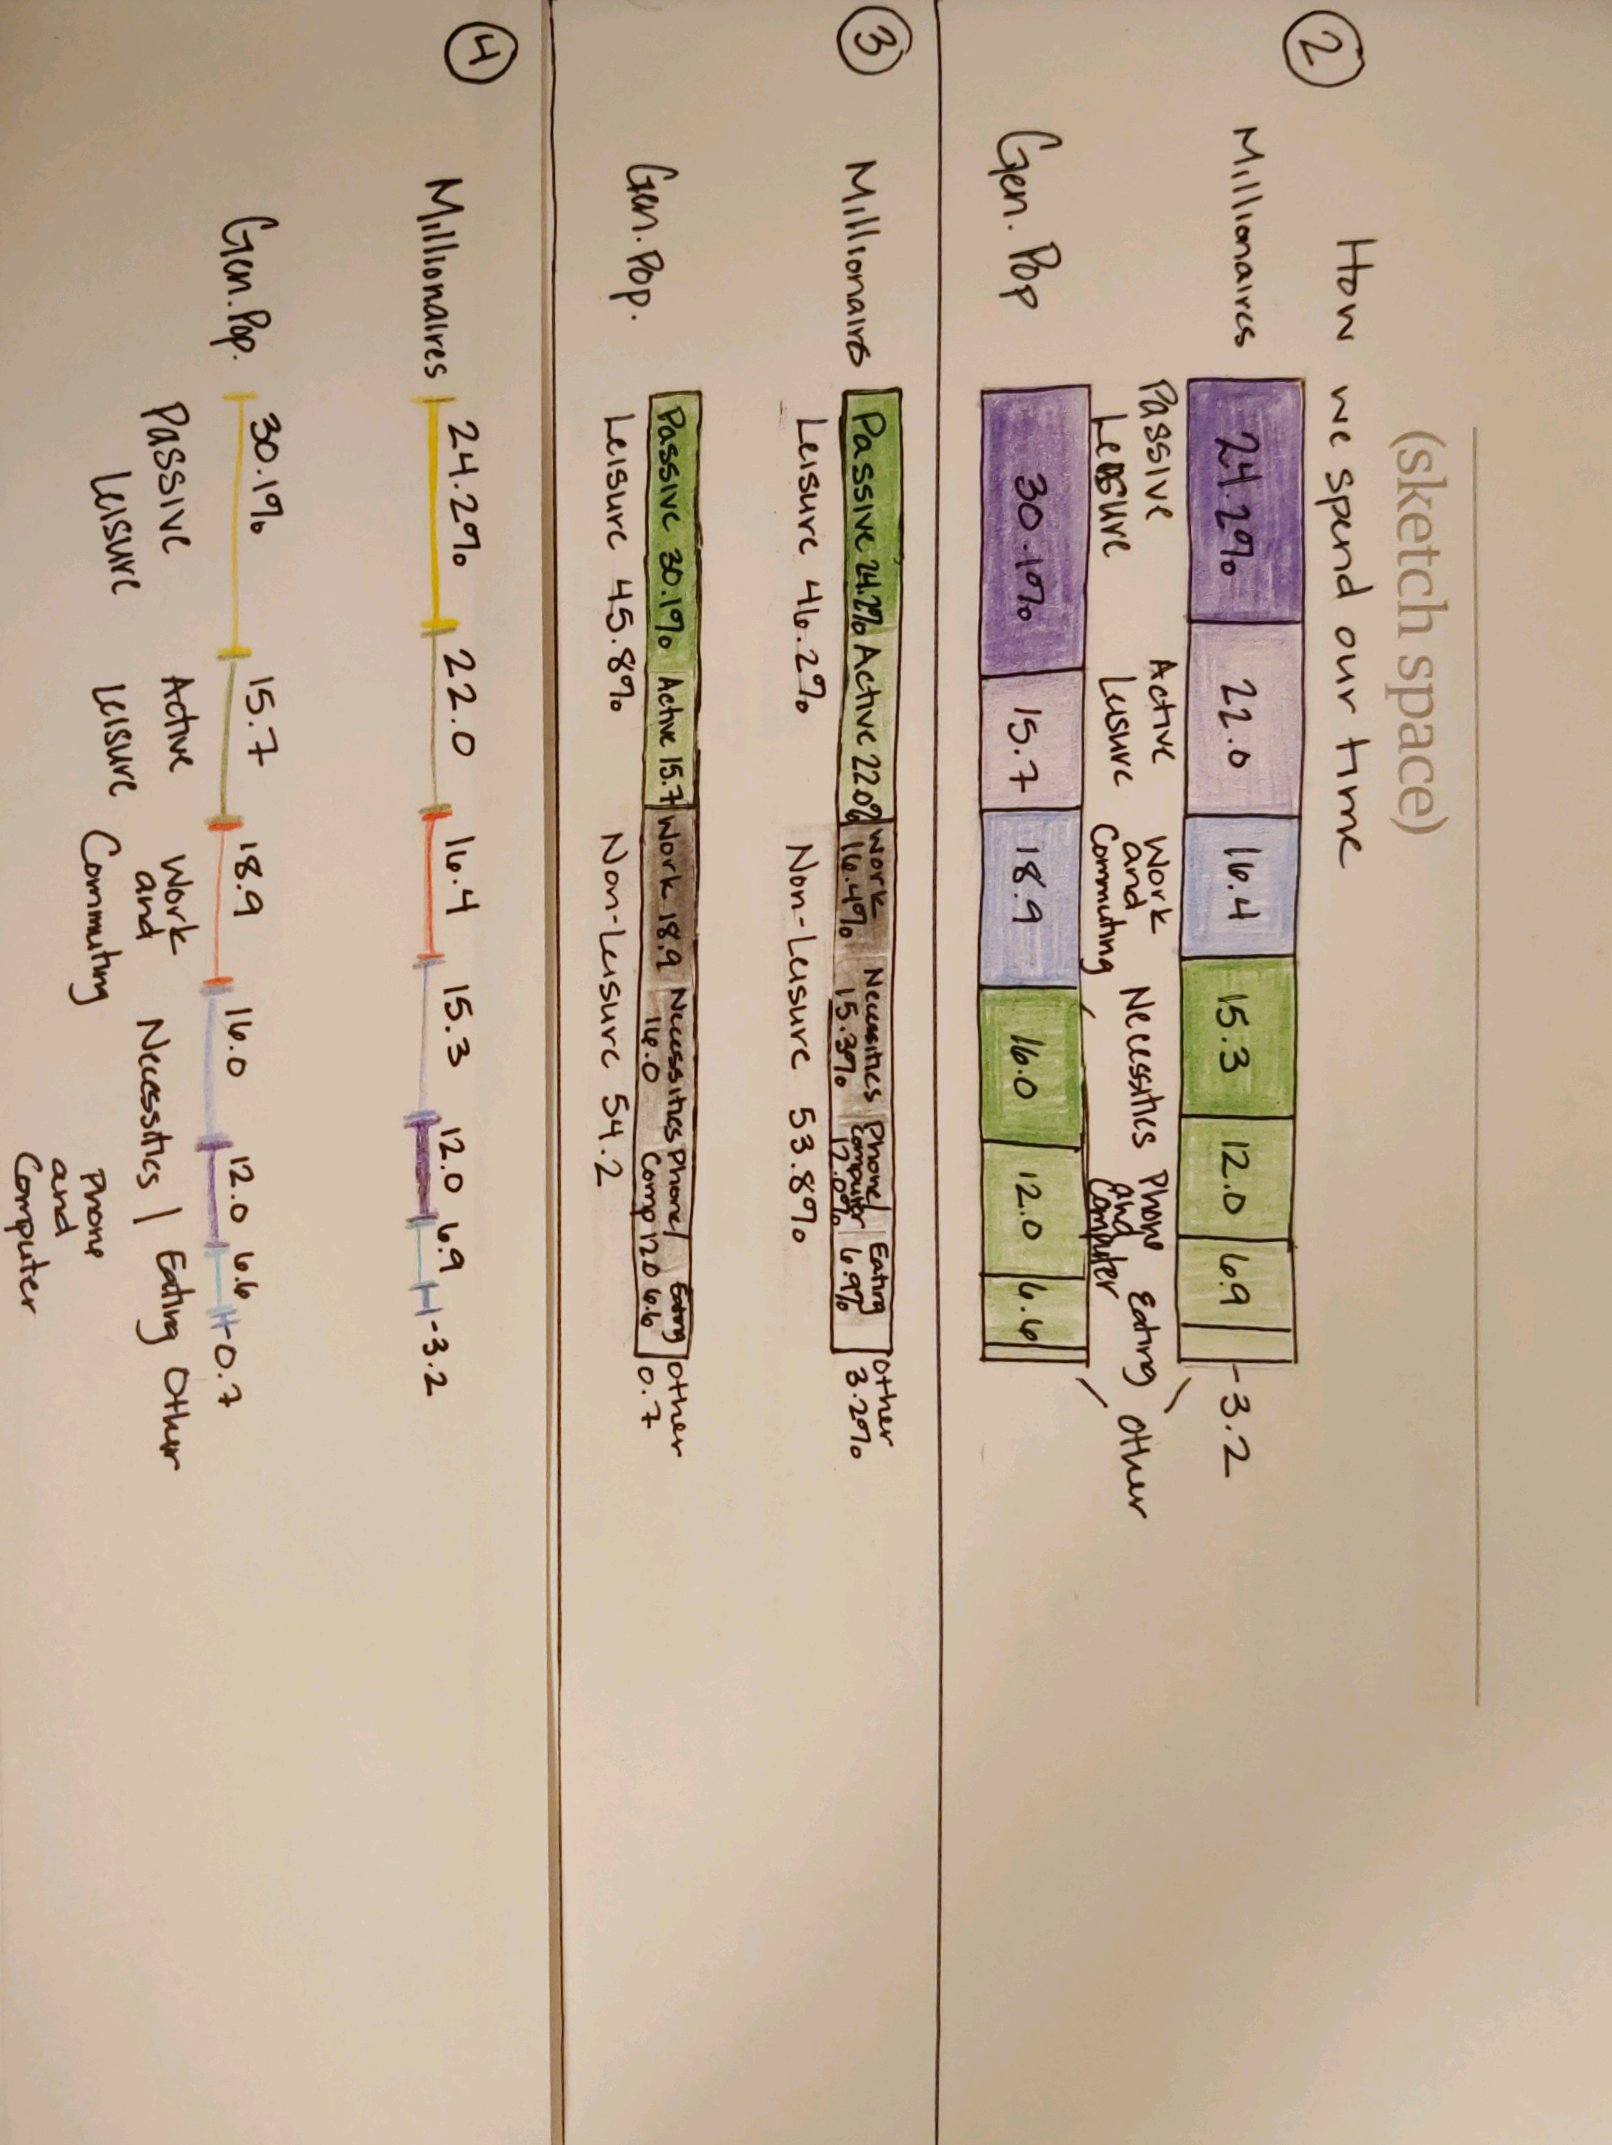 (sketch space)
2
How we spend our time
Millionaires 24.2% 22.0 16.4 15.3 12.0 6.9 -3.2
Passive Leisure
Active Leisure
Work and Commuting
Necessities
Phone and Computer
Eating
Other
Gen. Pop 30.1% 15.7 18.9 16.0 12.0 6.6
3
Millionaires
Passive 24.2% Active 22.0%
Work 16.4%
Necessities 15.3%
Phone/ Computer 12.0%
Eating 6.9%
Other 3.2%
Leisure 46.2% Non-Leisure 53.8%
Gen. Pop.
Passive 30.1% Active 15.7
Work 18.9
Necessities 16.0
Phone/ Comp 12.0
Eating 6.6
Other 0.7
Leisure 45.8% Non-Leisure 54.2
4
Millionaires 24.2% 22.0 16.4 15.3 12.0 6.9 -3.2
Gen. Pop. 30.1% 15.7 18.9 16.0 12.0 6.6 -0.7
Passive Leisure
Active Leisure
Work and Commuting
Necessities
Phone and Computer
Eating
Other